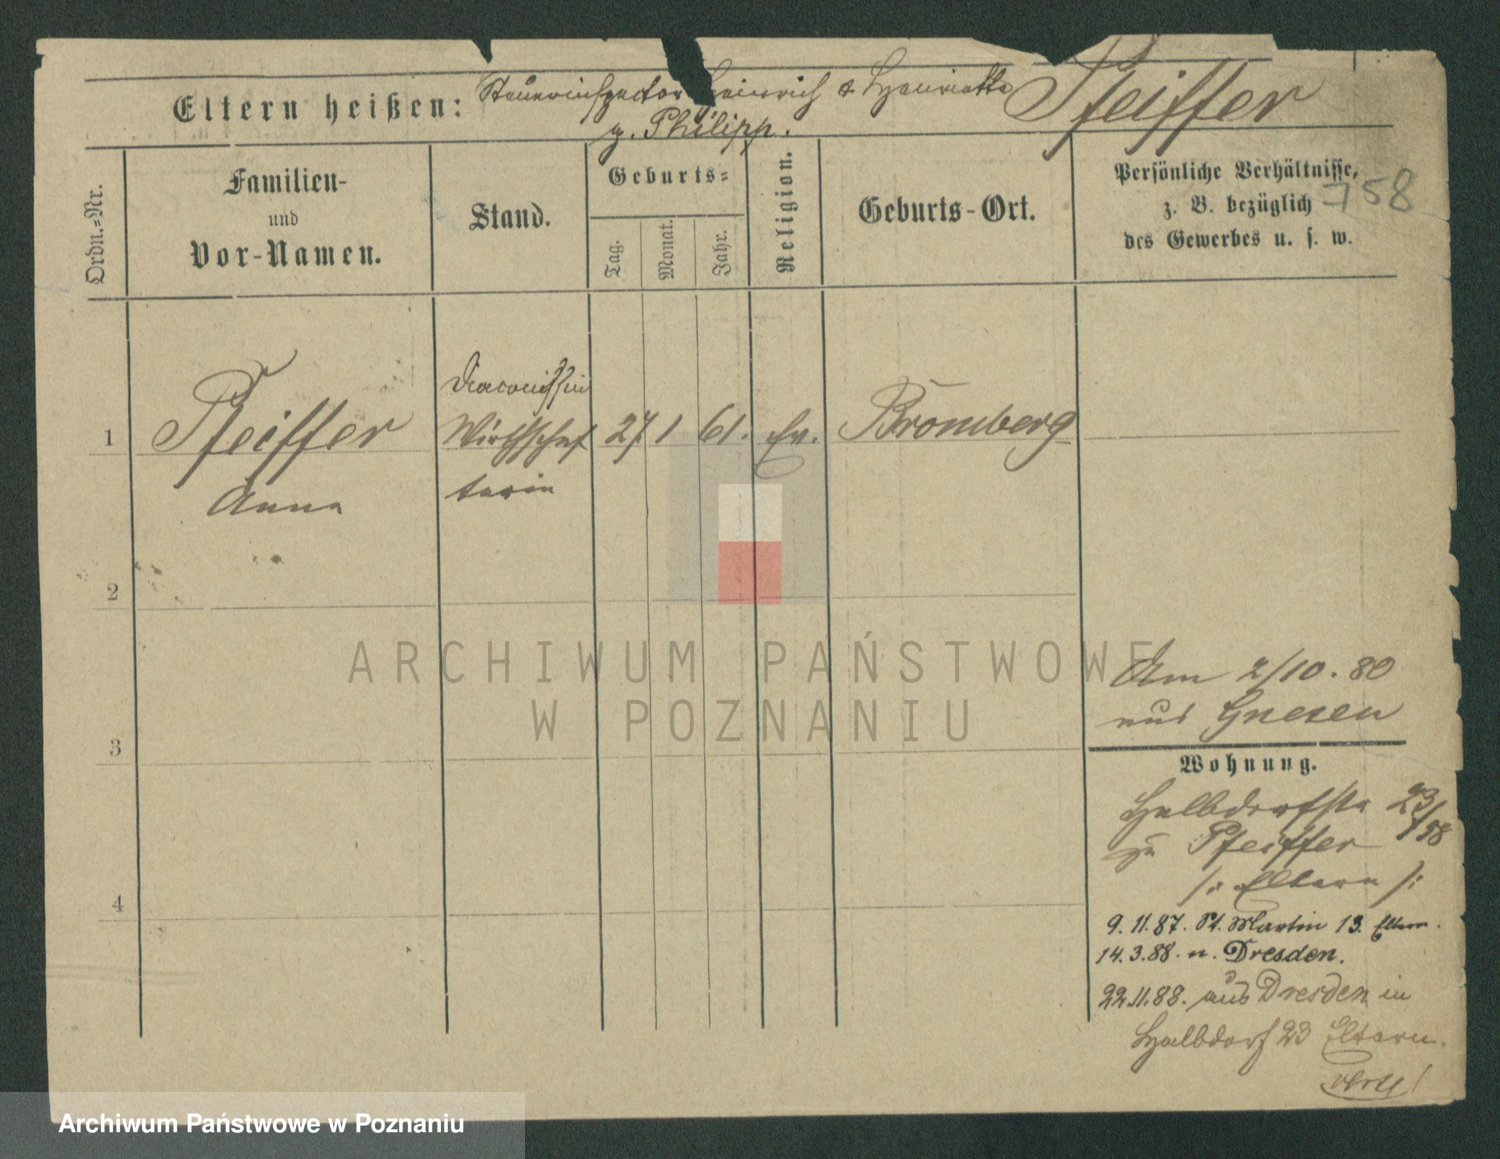 Eltern heißen: Steuerinspector Heinrich & Henriette Pfeiffer
g. Philipp.
Ordn.-Nr.
Familien-
und
Vor-Namen.
Stand.
Geburts-
Tag.
Monat.
Jahr.
Religion.
Geburts-Ort.
Persönliche Verhältnisse,
z. B. bezüglich
des Gewerbes u. s. w.
758
1 Pfeiffer
Anna
Diaconissin
Wirthschaf
terin
27. 1 61. Ev. Bromberg
2
3
4
Am 2/10. 80
aus Gnesen
Wohnung.
Halbdorfstr 23/
758
zu Pfeiffer
/: Eltern :/
9. 11. 87. St. Martin 13. Eltern.
14. 3. 88. n. Dresden.
22. 11. 88. aus Dresden in
Halbdorf 23 Eltern.
ARCHIWUM PAŃSTWOWE
W POZNANIU
Archiwum Państwowe w Poznaniu